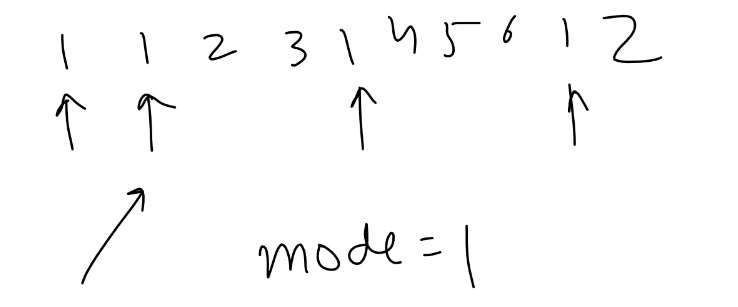 1 1 2 3 1 4 5 6 1 2
mode = 1